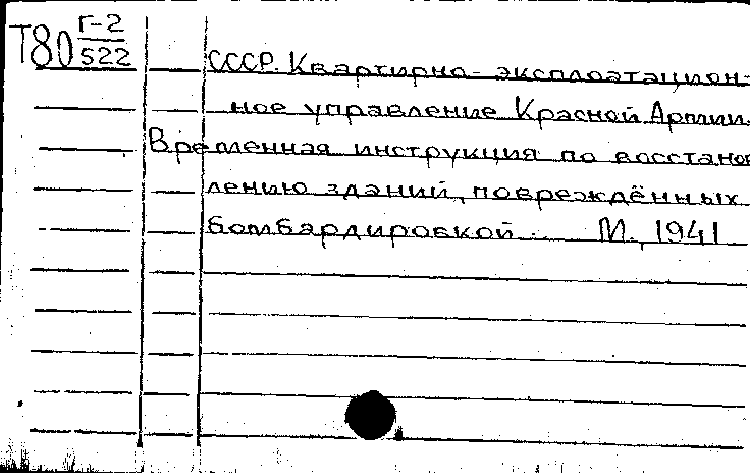 Т80 Г-2
522
СССР. Квартирно-эксплоатацион-
ное управление Красной Армии.
Временная инструкция по восстанов
лению зданий, повреждённых
бомбардировкой. М., 1941